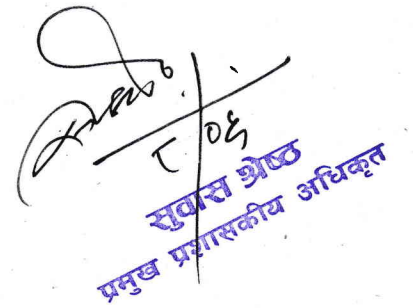 ८ ०६
सुवास श्रेष्ठ
प्रमुख प्रशासकीय अधिकृत